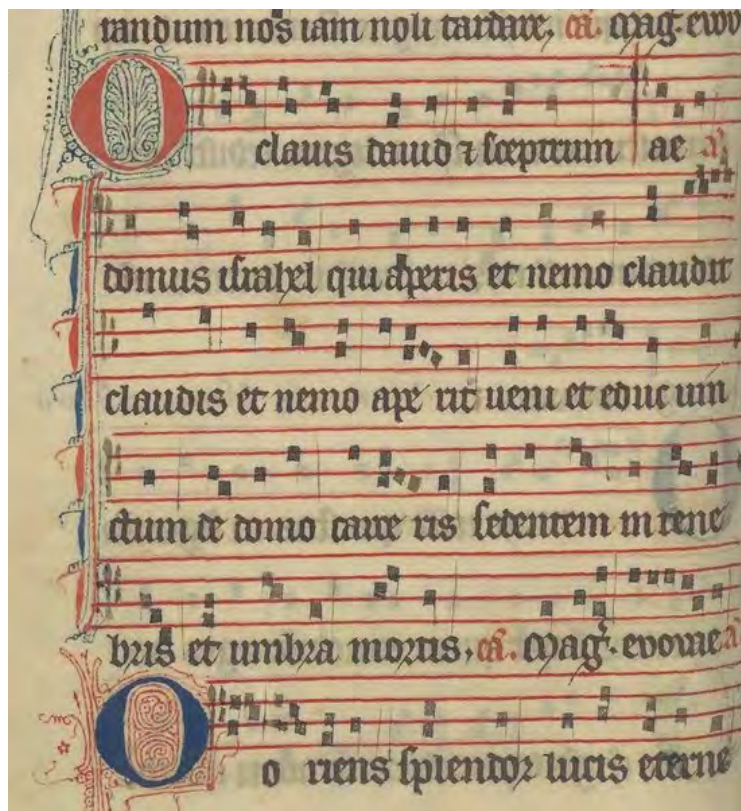 randum nos iam noli tardare, cā. Mag. evov
O clauis dauid ⁊ sceptrum ae ā
domus israhel qui aperis et nemo claudit
claudis et nemo ape rit ueni et educ uin
ctum de domo carce ris sedentem in tene
bris et umbra mortis, cā. Mag. evovae ā
O o riens splendor lucis eterne